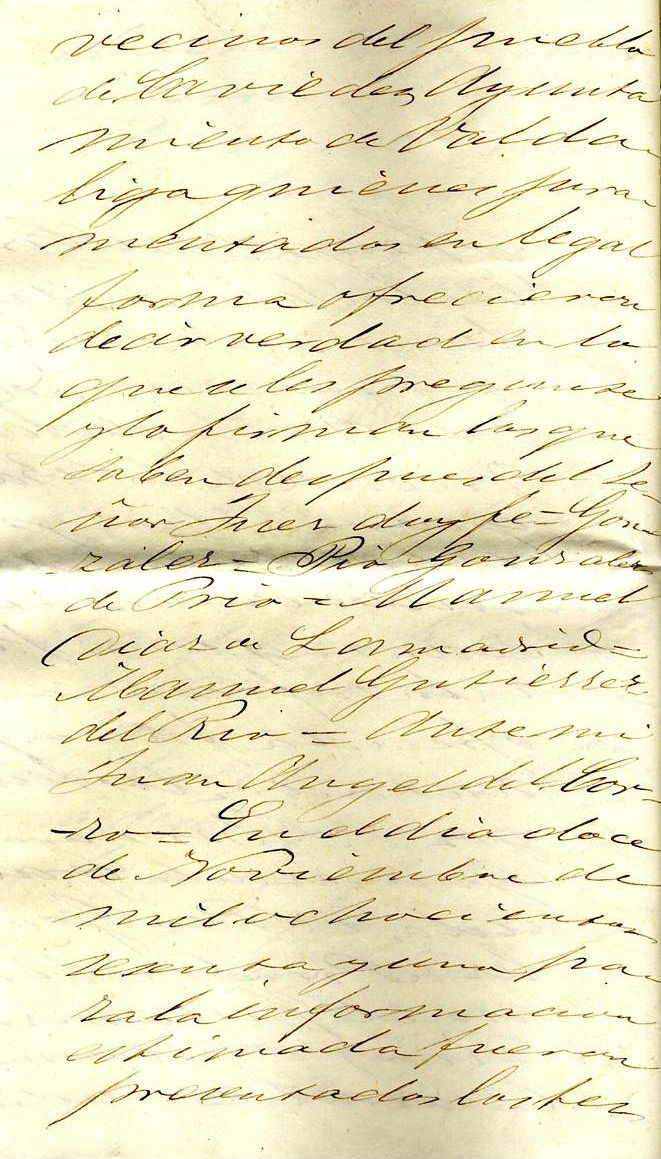 vecinos del pueblo
de Caviedes Ayunta
miento de Valda
liga quienes jura
mentados en legal
forma ofrecieron
decir verdad en lo
que se les pregunte
y lo firman los que
saben despues del Se
ñor Juez doy fe = Gon
zalez = Pio Gonzalez
de Prio = Manuel
Diaz de Lamadrid =
Manuel Gutierrez
del Rio = Ante mi
Juan Angel del Cor-
-ro = En el dia doce
de Noviembre de
mil ochocientos
sesenta y uno pa
ra la informacion
estimada fueron
presentados los tes